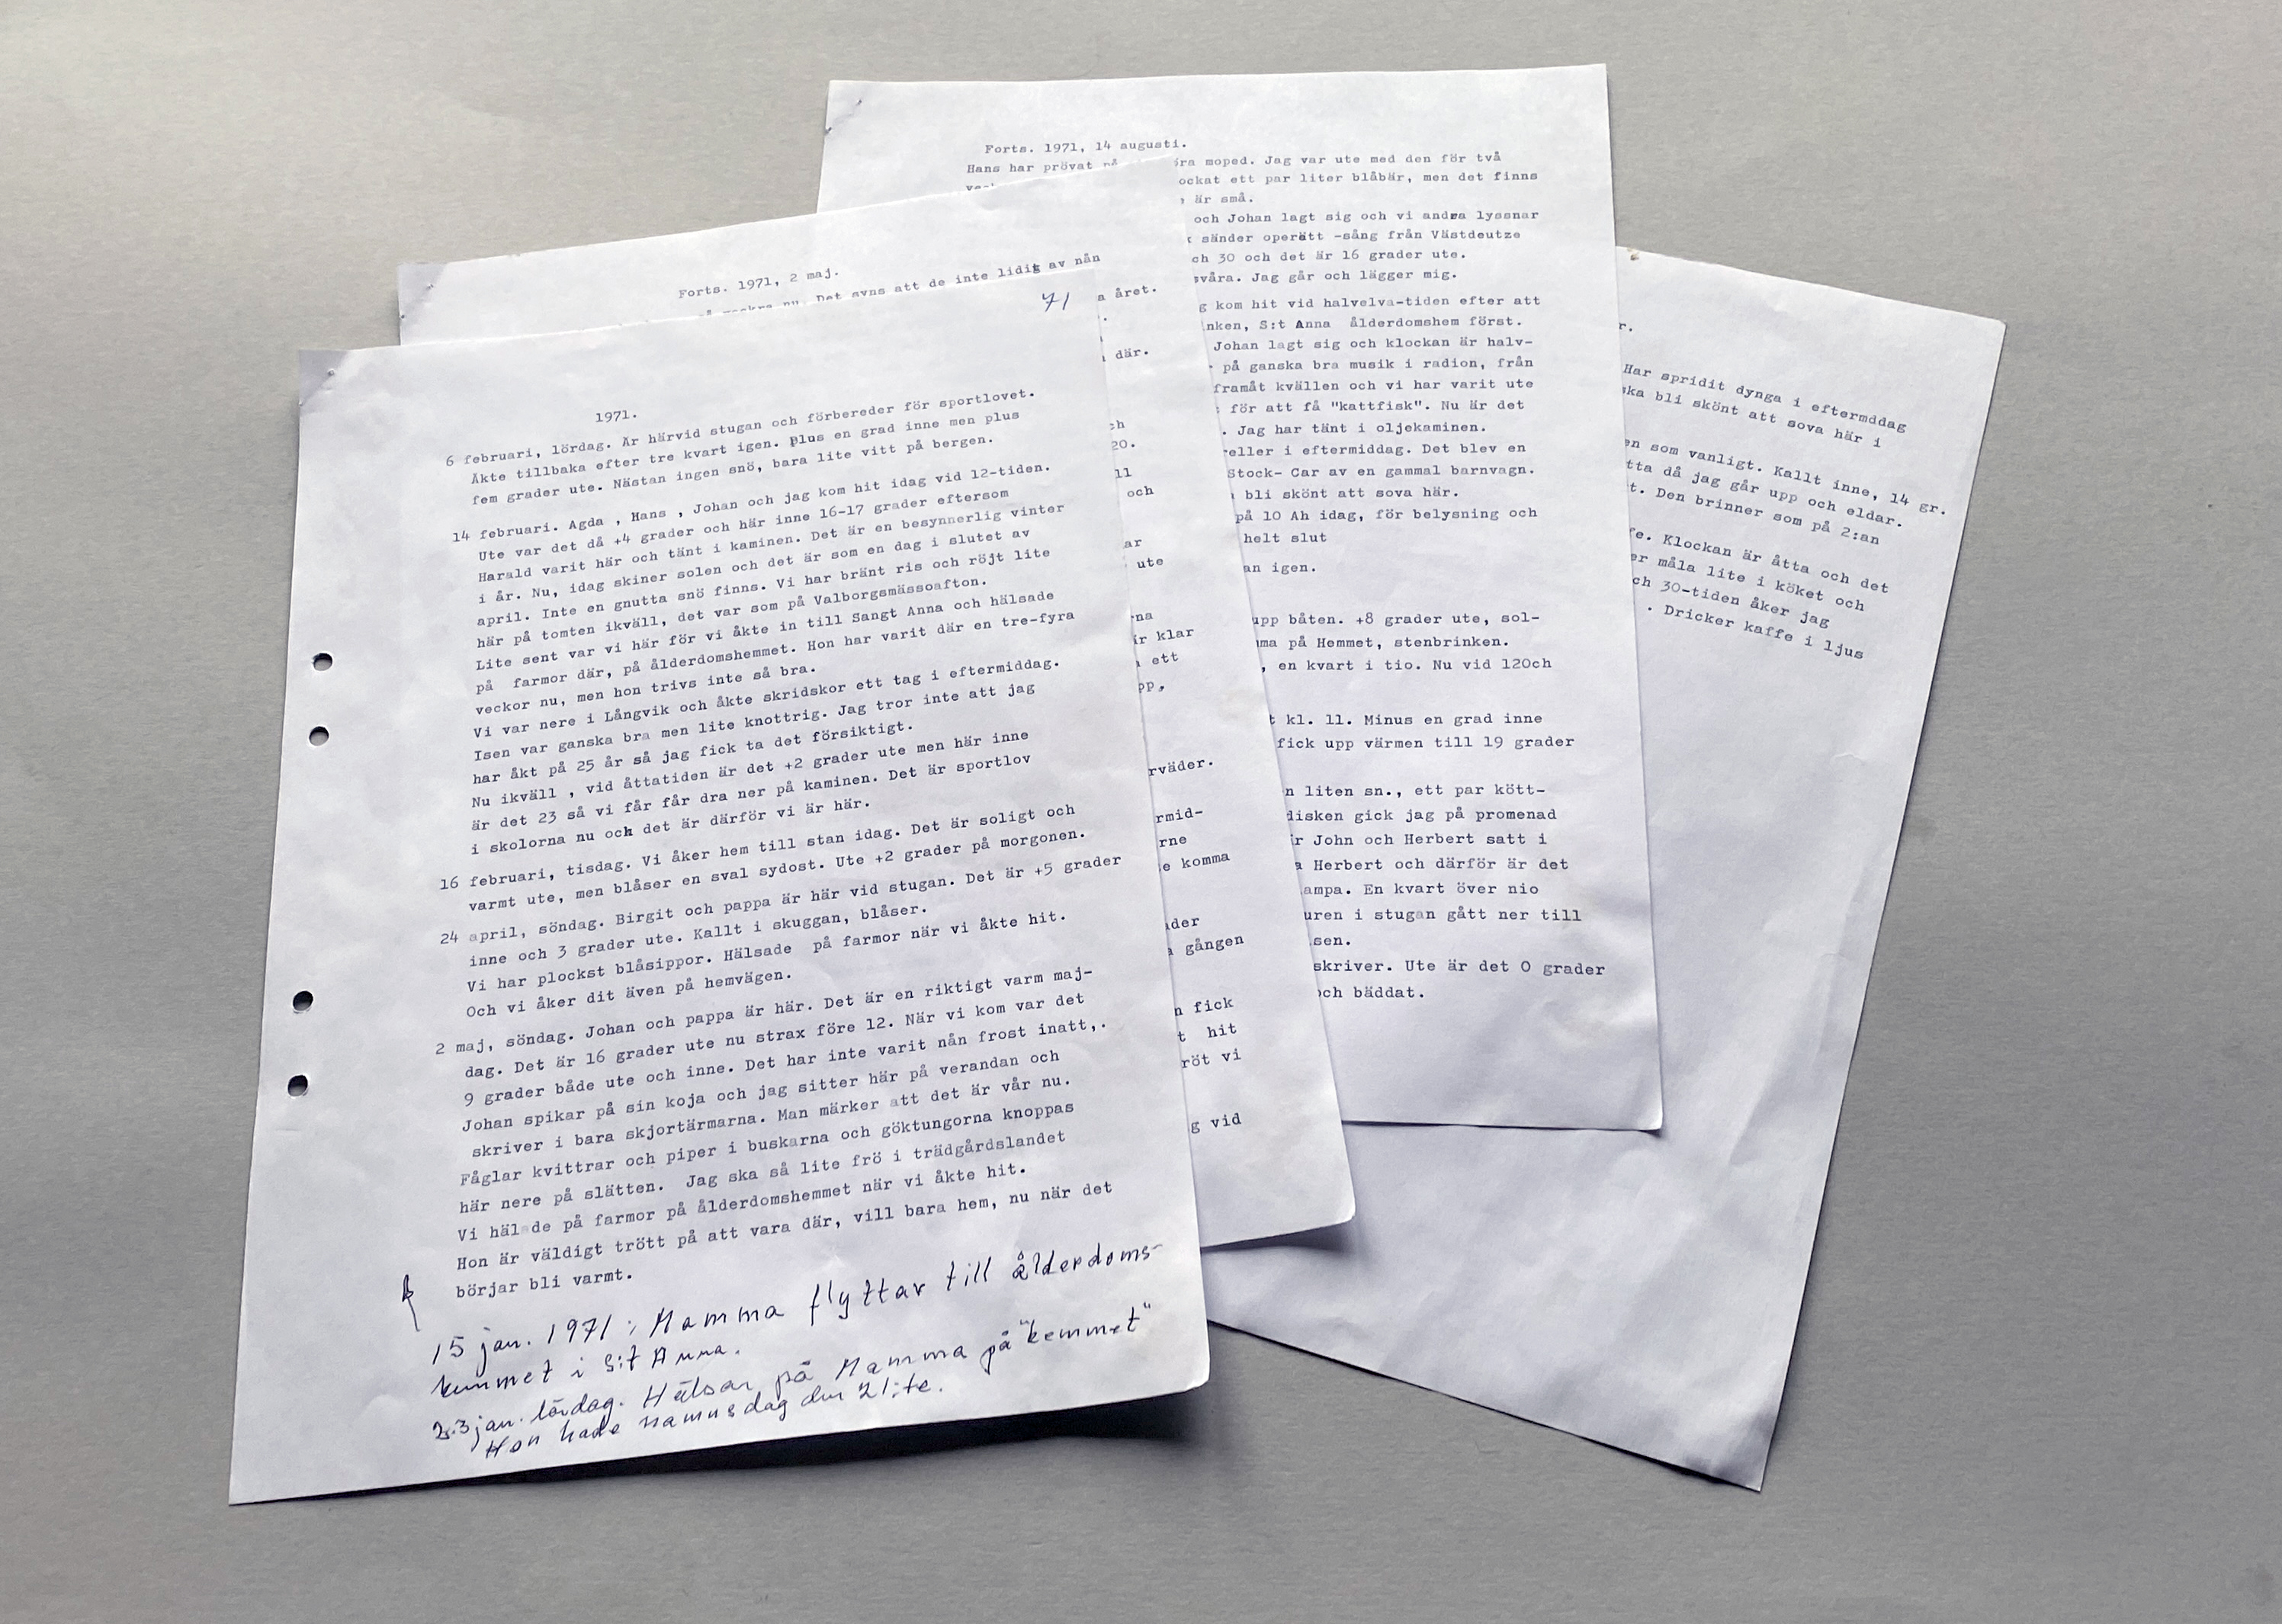 71
1971.
6 februari, lördag. Är härvid stugan och förbereder för sportlovet.
Åkte tillbaka efter tre kvart igen. plus en grad inne men plus
fem grader ute. Nästan ingen snö, bara lite vitt på bergen.
14 februari. Agda , Hans , Johan och jag kom hit idag vid 12-tiden.
Ute var det då +4 grader och här inne 16-17 grader eftersom
Harald varit här och tänt i kaminen. Det är en besynnerlig vinter
i år. Nu, idag skiner solen och det är som en dag i slutet av
april. Inte en gnutta snö finns. Vi har bränt ris och röjt lite
här på tomten ikväll, det var som på Valborgsmässoafton.
Lite sent var vi här för vi åkte in till Sangt Anna och hälsade
på farmor där, på ålderdomshemmet. Hon har varit där en tre-fyra
veckor nu, men hon trivs inte så bra.
Vi var nere i Långvik och åkte skridskor ett tag i eftermiddag.
Isen var ganska bra men lite knottrig. Jag tror inte att jag
har åkt på 25 år så jag fick ta det försiktigt.
Nu ikväll , vid åttatiden är det +2 grader ute men här inne
är det 23 så vi får får dra ner på kaminen. Det är sportlov
i skolorna nu och det är därför vi är här.
16 februari, tisdag. Vi åker hem till stan idag. Det är soligt och
varmt ute, men blåser en sval sydost. Ute +2 grader på morgonen.
24 april, söndag. Birgit och pappa är här vid stugan. Det är +5 grader
inne och 3 grader ute. Kallt i skuggan, blåser.
Vi har plockst blåsippor. Hälsade på farmor när vi åkte hit.
Och vi åker dit även på hemvägen.
2 maj, söndag. Johan och pappa är här. Det är en riktigt varm maj-
dag. Det är 16 grader ute nu strax före 12. När vi kom var det
9 grader både ute och inne. Det har inte varit nån frost inatt,.
Johan spikar på sin koja och jag sitter här på verandan och
skriver i bara skjortärmarna. Man märker att det är vår nu.
Fåglar kvittrar och piper i buskarna och göktungorna knoppas
här nere på slätten. Jag ska så lite frö i trädgårdslandet
Vi häl de på farmor på ålderdomshemmet när vi åkte hit.
Hon är väldigt trött på att vara där, vill bara hem, nu när det
börjar bli varmt.
15 jan. 1971: Mamma flyttar till ålderdoms-
hemmet i S:t Anna.
23 jan. lördag. Hälsar på Mamma på "hemmet"
Hon hade namnsdag den 21:te.
Forts. 1971, 2 maj.
Det syns att de inte lidit av nån
a året.
där.
ch
20.
11
och
ar
ute
rna
är klar
ett
pp,
rväder.
rmid-
rne
e komma
der
gången
n fick
t hit
röt vi
g vid
Forts. 1971, 14 augusti.
Hans har prövat på ra moped. Jag var ute med den för två
ockat ett par liter blåbär, men det finns
är små.
och Johan lagt sig och vi andra lyssnar
sänder operätt -sång från Västdeutze
ch 30 och det är 16 grader ute.
svåra. Jag går och lägger mig.
g kom hit vid halvelva-tiden efter att
nken, S:t Anna ålderdomshem först.
Johan lagt sig och klockan är halv-
på ganska bra musik i radion, från
framåt kvällen och vi har varit ute
för att få "kattfisk". Nu är det
. Jag har tänt i oljekaminen.
eller i eftermiddag. Det blev en
Stock- Car av en gammal barnvagn.
bli skönt att sova här.
på 10 Ah idag, för belysning och
helt slut
an igen.
upp båten. +8 grader ute, sol-
ma på Hemmet, stenbrinken.
, en kvart i tio. Nu vid 12och
t kl. 11. Minus en grad inne
fick upp värmen till 19 grader
n liten sn., ett par kött-
disken gick jag på promenad
r John och Herbert satt i
a Herbert och därför är det
ampa. En kvart över nio
uren i stugan gått ner till
sen.
skriver. Ute är det 0 grader
och bäddat.
r.
Har spridit dynga i eftermddag
ska bli skönt att sova här i
en som vanligt. Kallt inne, 14 gr.
tta då jag går upp och eldar.
t. Den brinner som på 2:an
fe. Klockan är åtta och det
er måla lite i köket och
ch 30-tiden åker jag
. Dricker kaffe i ljus